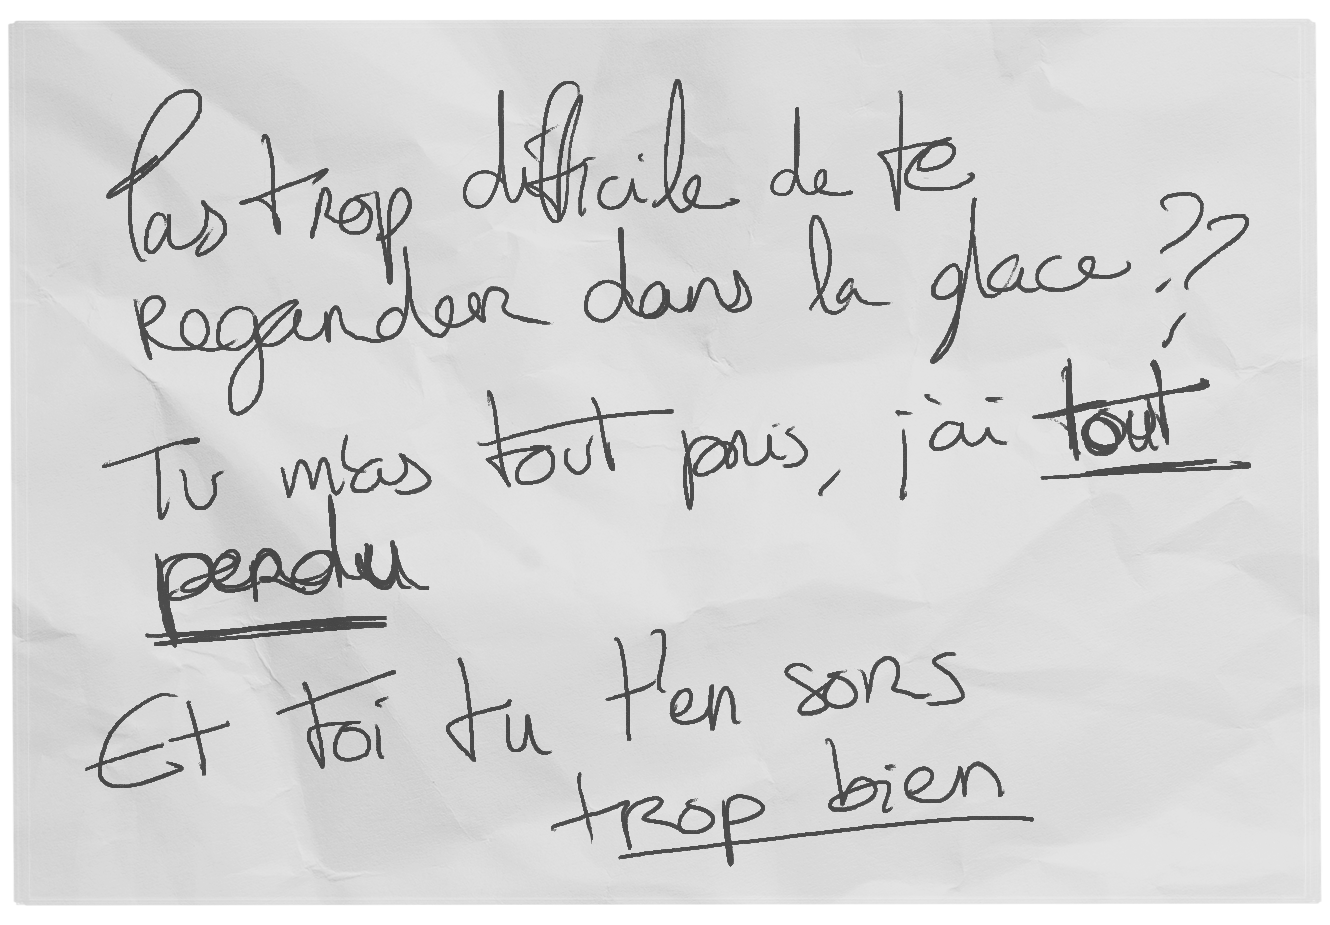 Pas trop difficile de te
regarder dans la glace ??
Tu m'as tout pris, j'ai tout
perdu
Et toi tu t'en sors
trop bien